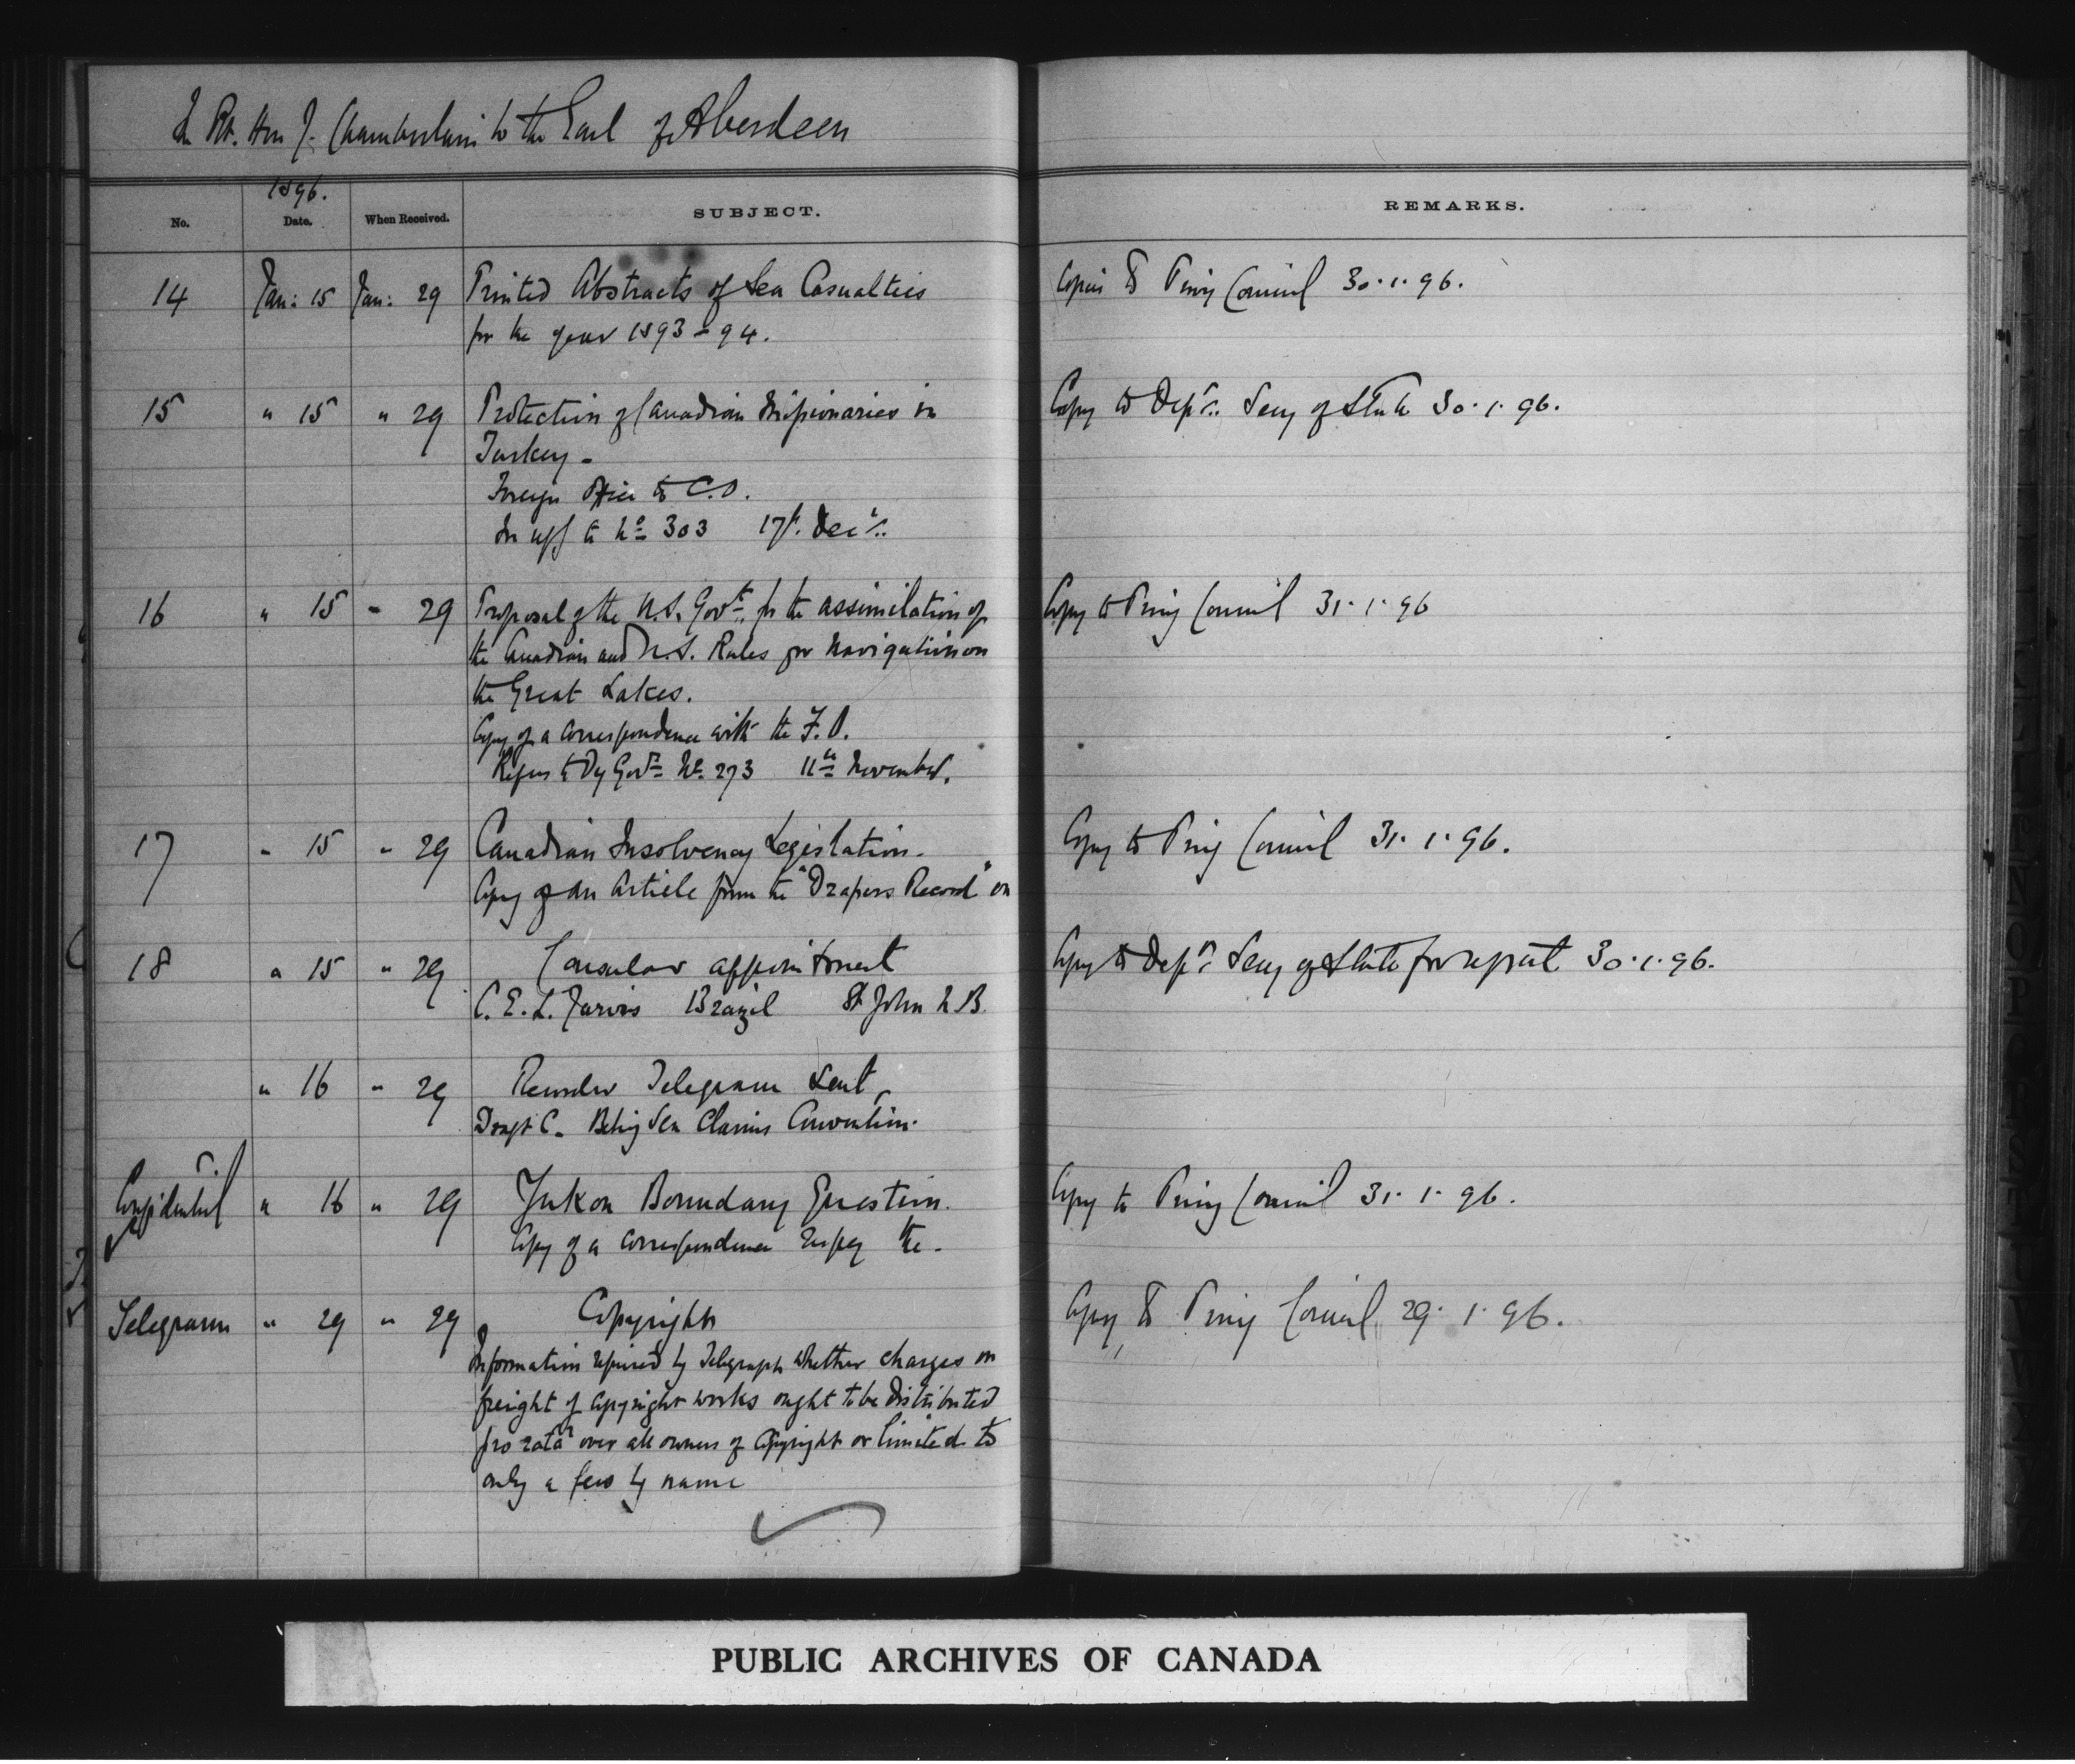 The Rt. Hon J. Chamberlain to the Earl of Aberdeen
1896.
No. Date. When Received. SUBJECT. REMARKS.
14 Jan: 15 Jan: 29 Printed Abstracts of Sea Casualties Copies to Privy Council 30.1.96.
for the year 1893-94.
15 " 15 " 29 Protection of Canadian Missionaries in Copy to Dept. Secy of State 30.1.96.
Turkey -
Foreign Office to C.O.
In to No 303 17th Decr.
16 " 15 " 29 Proposal of the U.S. Govt. for the assimilation of Copy to Privy Council 31.1.96
the Canadian and U.S. Rules for Navigation on
the Great Lakes.
Copy of a correspondence with the F.O.
Refers to Dy Govrs No. 273 11th November.
17 " 15 " 29 Canadian Insolvency Legislation. Copy to Privy Council 31.1.96.
Copy of an Article from the "Drapers Record" on
18 " 15 " 29 Consular appointment Copy to Dept. Secy of State for report 30.1.96.
C. E. L. Jarvis Brazil St John N.B.
" 16 " 29 Recorder Telegram Sent
Draft C. Behring Sea Claims Convention.
Confidential " 16 " 29 Yukon Boundary Question. Copy to Privy Council 31.1.96.
Copy of a correspondence respg the -
Telegram " 29 " 29 Copyright Copy to Privy Council 29.1.96.
Information required by Telegraph whether charges on
freight of Copyright works ought to be distributed
pro rata over all owners of Copyright or limited to
only a few by name
PUBLIC ARCHIVES OF CANADA